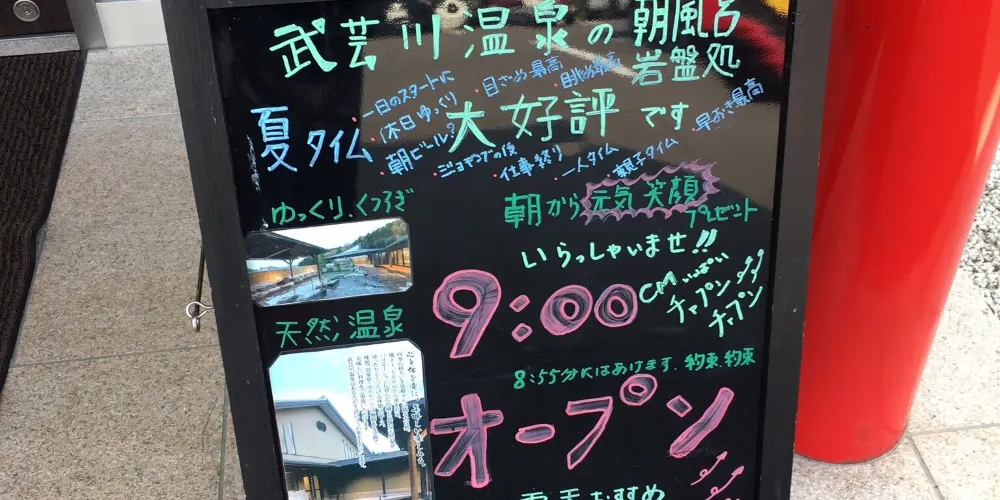 武芸川温泉の朝風呂
岩盤処
夏タイム
・一日のスタートに
・休日ゆっくり
・朝ビール?
・目ざめ最高
大好評です
・ジョギングの後
仕事終り
・一人タイム
・親子タイム
・早おき最高
ゆっくり、くつろぎ
朝から元気笑顔
プレゼント
いらっしゃいませ!!
9:00
CMいっぱい
チャプン
チャプン
天然温泉
8:55分にはあけます。約束、約束
オープン
おすすめ